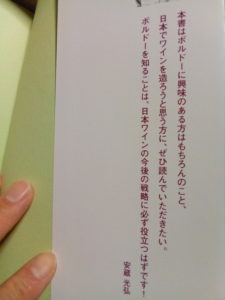 本書はボルドーに興味のある方はもちろんのこと、
日本でワインを造ろうと思う方に、ぜひ読んでいただきたい。
ボルドーを知ることは、日本ワインの今後の戦略に必ず役立つはずです!
安蔵 光弘